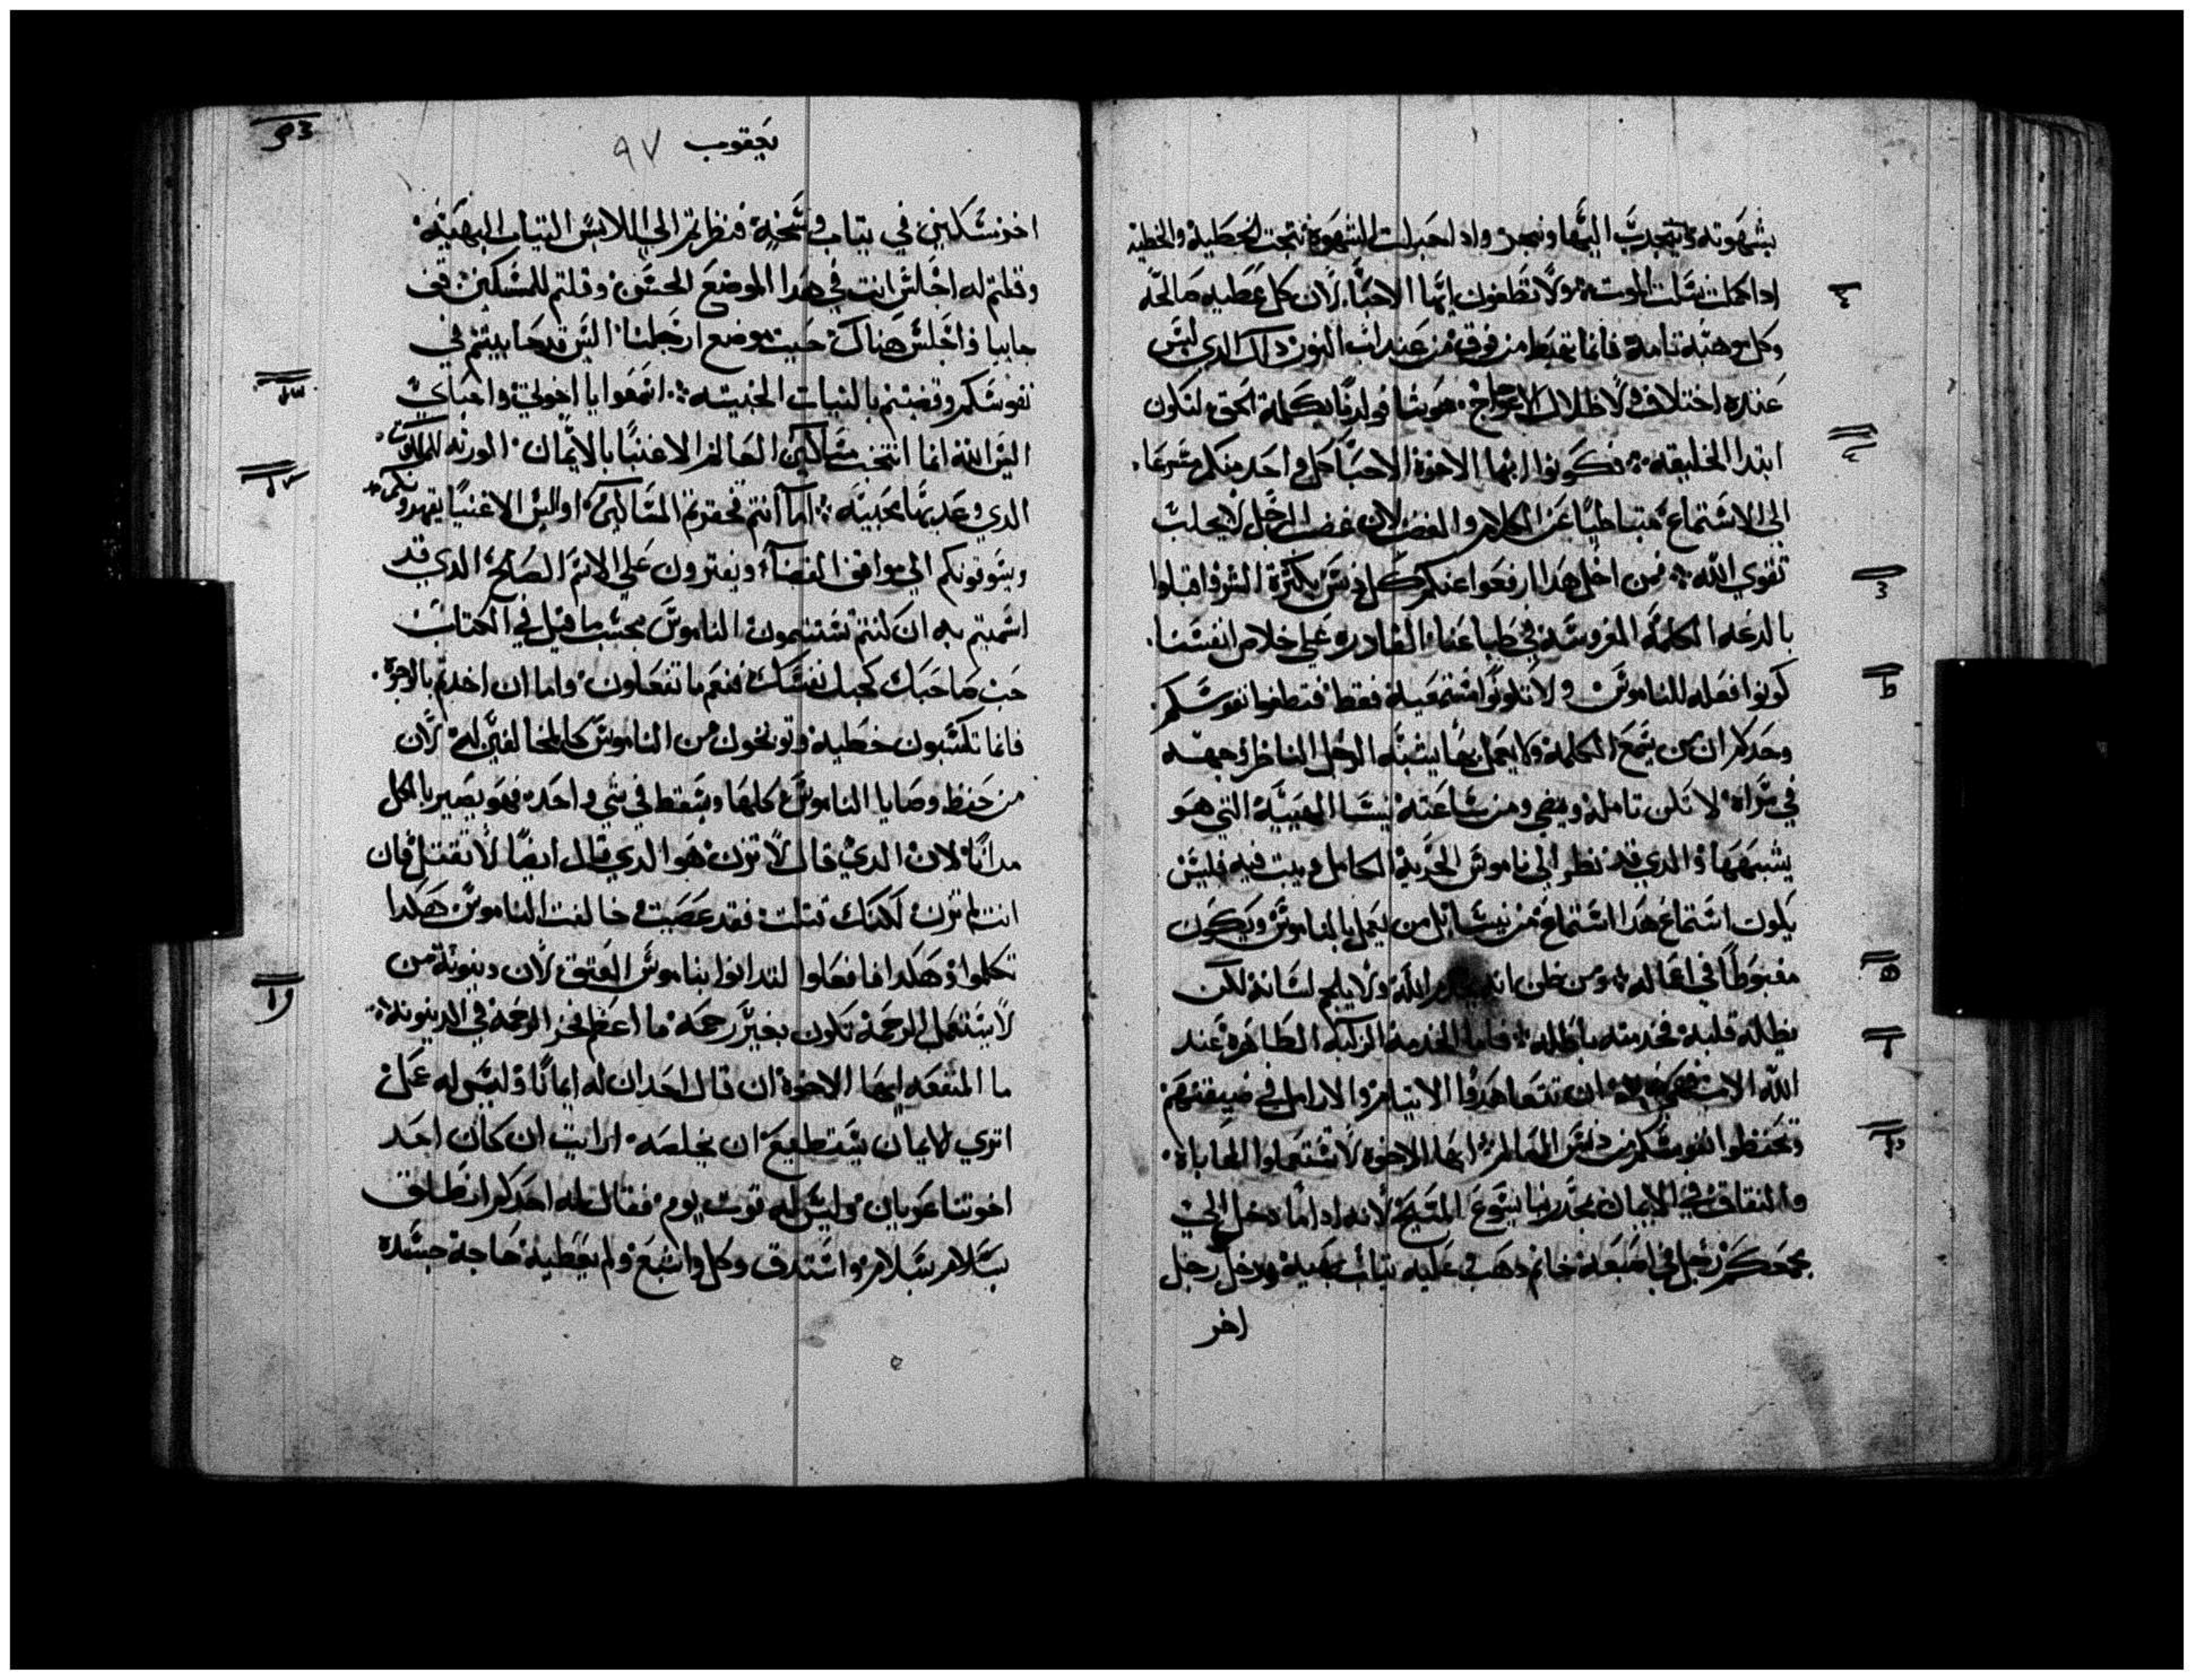 بشهوته وينجدب اليها وينجر واذا حبلت الشهوة نتجت الخطيه والخطيه
ادا كملت نتلت الموت ولا تطغون ايها الاحبا لان كل عطيه صالحه
وكل موهبه تامه فانما تهبط من فوق من عند اب النور ذلك الدي ليس
عنده اختلاف ولا ظلال الاعوجاج هو شا فولدنا بكلمة الحق لنكون
ابتدا الخليقه فكونوا ايها الاخوة الاحبا كل واحد منكم مسرعا
الى الاستماع متباطيا عن الكلام والغضب لان غضب الرجل لا يجلب
تقوي الله فمن اجل هدا ارفعوا عنكم كل دنس بكثرة الشر واقبلوا
بالدعه الكلمه المغروسه في طباعنا القادره على خلاص انفسنا
كونوا فعله للناموس ولا تكونوا مستمعيه فقط فتطغوا نفوسكم
وحدكم ان من يسمع الكلمه ولا يعمل بها يشبه الرجل الناظر وجهه
في مراه لا تلن تامله ويمضي ومن ساعته ينسا الهييه التي هو
يشبهها والدي قد نظر الي ناموس الحرية الكامل وثبت فيه فليس
يكون استماع هدا استماع من ينسا بل من يعمل بالناموس ويكون
مغبوطا في اعماله ومن ظن انه يخدم الله ولا يلجم لسانه لكن
يظله قلبه فخدمته باطله فاما الخدمه الزكيه الطاهره عند
الله الاب فهي هده ان تتعاهدوا الايتام والارامل في ضيقتهم
وتحفظوا نفوسكم من دنس العالم ايها الاخوه لا تستعملوا المحاباة
والنفاق في الايمان بمجد ربنا يسوع المسيح لانه ادا ما دخل الي
مجمعكم رجل في اصبعه خاتم دهب عليه ثياب بهيه ودخل رجل
اخر
يعقوب ٩٧
اخر مسكين في تياب وسخه فنظرتم الي اللابس التياب البهيه
وقلتم له اجلس انت في هدا الموضع الحسن وقلتم للمسكين قف
جانبا او اجلس هناك حيت موضع ارجلنا اليس قد حابيتم في
نفوسكم وقضيتم بالنيات الخبيته اسمعوا يا اخوتي واحباي
اليس الله انما انتخب مساكين العالم الاغنيا بالايمان الورته للملكوت
الدي وعد بها محبيه اما انتم فحقرتم المساكين اوليس الاغنيا يقهرونكم
ويسوقونكم الي مواقف القضا ويفترون علي الاسم الصالح الدي قد
اسميتم به ان كنتم تستتمون الناموس بحسب ما قيل في الكتاب
حب صاحبك كحبك نفسك فنعم ما تفعلون واما ان اخدتم بالوجوه
فانما تكسبون خطيه وتوبخون من الناموس كالمخالفين له لان
من حفظ وصايا الناموس كلها وسقط في شي واحد فهو يصير بالكل
مدانا لان الدي قال لا تزن هو الدي قال ايضا لا تقتل فان
انت لم تزن لكنك قتلت فقد عصيت وخالفت الناموس هكدا
تكلموا وهكدا فافعلوا لتدانوا بناموس العتق لان دينونة من
لا يستعمل الرحمه تكون بغير رحمه ما اعظم فخر الرحمه في الدينونه
ما المنفعه ايها الاخوة ان قال احد ان له ايمانا وليس له عمل
اتري الايمان يستطيع ان يخلصه ارايت ان كان احد
اخوتنا عريان وليس له قوت يوم فقال له احدكم انطلق
بسلام بسلام واستدف وكل واشبع ولم يعطيه حاجة جسده